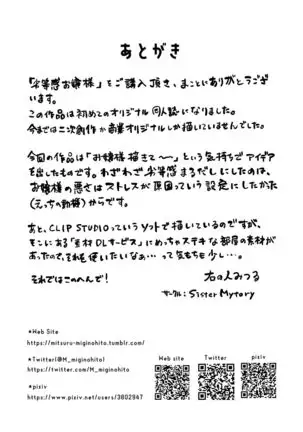 あとがき
「劣等感お嬢様」をご購入頂き、まことにありがとうござ
います。
この作品は初めてのオリジナル同人誌になりました。
今までは二次創作か商業オリジナルしか描いていませんでした。
今回の作品は「お嬢様描きて〜」という気持ちでアイデア
を出したものです。わざわざ劣等感まるだしにしたのは、
お嬢様の悪さはストレスが原因っていう設定にしたかった
(えっちの動機)からです。
あと、CLIP STUDIOっていうソフトで描いているのですが、
そこにある「素材DLサービス」にめっちゃステキな部屋の素材が
あったので、それを使いたいなぁ…って気もちも少し…。
それではこのへんで!
右の人みつる
サークル:Sister Mytory
*Web Site
https://mitsuru-miginohito.tumblr.com/
*Twitter(@M_miginohito)
https://twitter.com/M_miginohito
*pixiv
https://www.pixiv.net/users/3802947
Web site
Twitter
pixiv